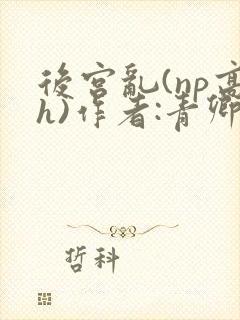 後宮亂(np高
h)作者:青卿
哲科